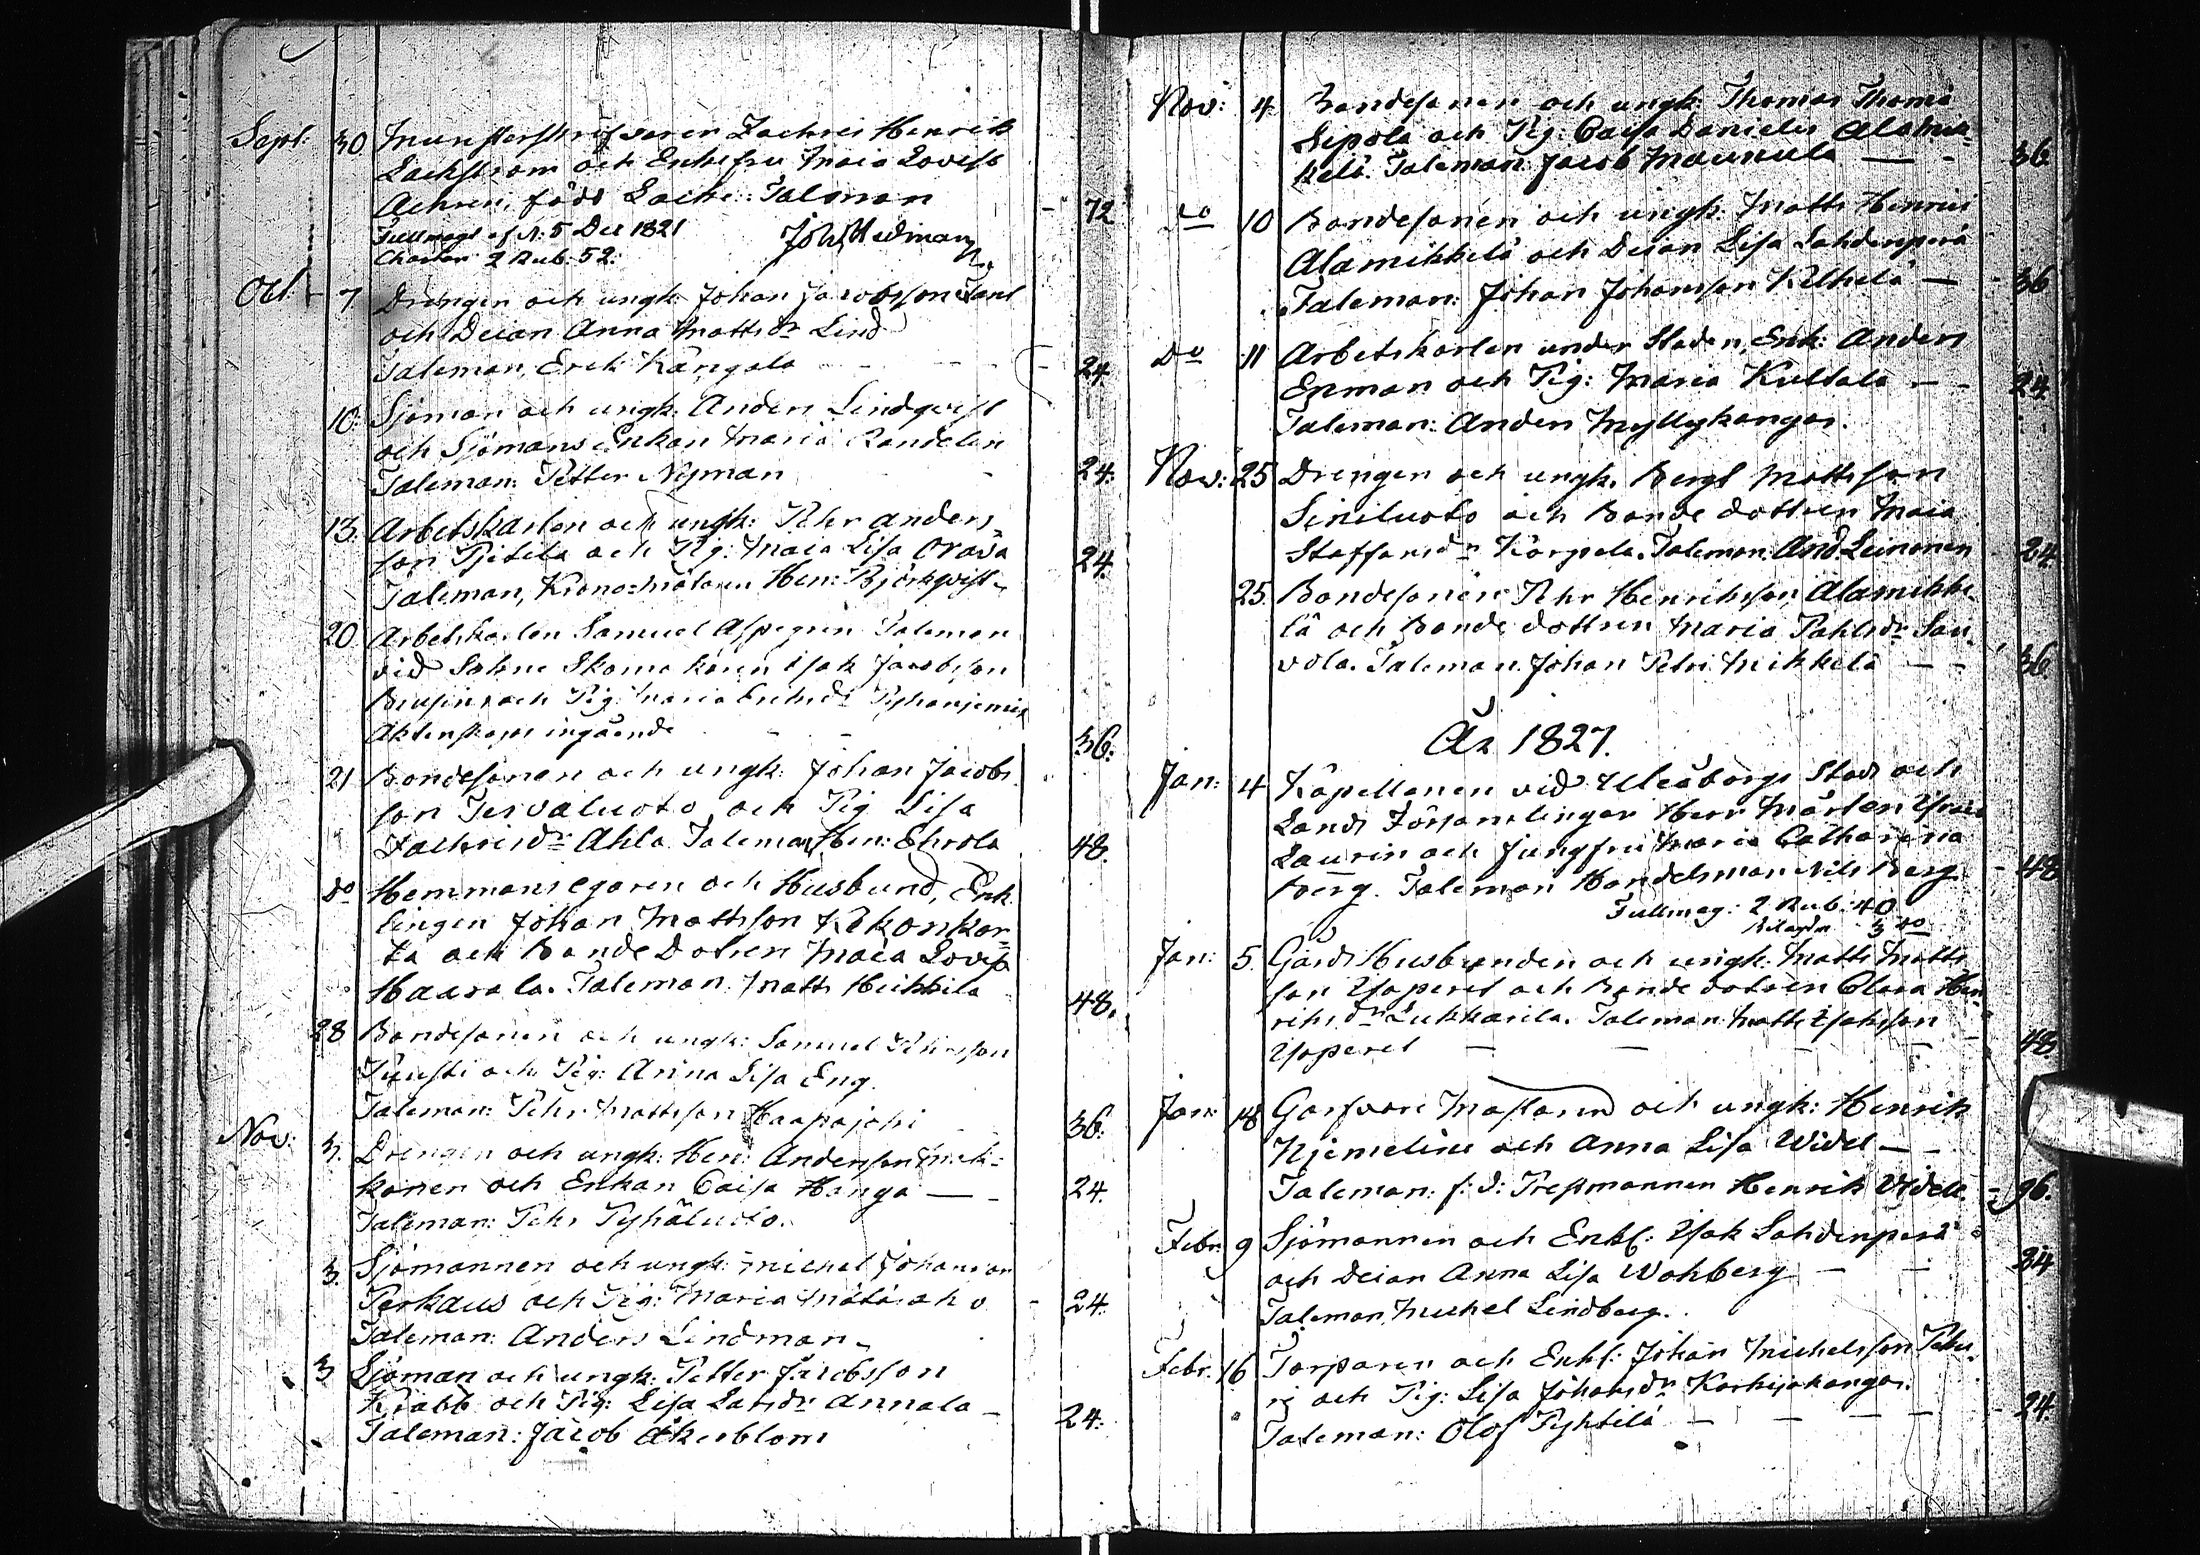 Sept: 30 Munsterskrifvaren Zachris Henrik
Lackstrom och Enkefru Maia Lovisa
Achren, född Lacke: Talman
Fullmagt af d. 5 Dec 1821 Joh Hedman
Charta 2 Rub. 52. 72
Oct: 7 Drengen och ungk: Johan Jacobsson
och Deian Anna Mattsdr Lind
Taleman, Erik Kangala 24
10. Sjöman och ungk: Anders Lindqvist
och Sjömans Enkan Maria Randelin
Taleman: Petter Nyman 24.
13. Arbetskarlen och ungk: Pehr Anders-
son Pjetilä och Pig: Maia Lisa Orava 24.
Taleman, Krono-Målaren Hen: Björkqvist
20. Arbetskarlen Samuel Aspegrén Taleman
vid Sahne Skomakaren Isak Jacobsson
och Pig: Maria Ericsdr
Äktenskaps ingående 36.
21 Bondesonen och ungk: Johan Jacobs
son Tervaluoto och Pig Lisa
Zachrisdr Ahla. Taleman, Hen: Ehrola 48.
Do Hemmansegaren och Husbund, Enk
lingen Johan Mattsson Kekonkor-
ka och Bonde Dotren Maia Lovisa
Haarala. Taleman: Matts Heikkilä 48.
28 Bondesonen och ungk: Samuel Pehrsson
Puusti och Pig: Anna Lisa Eng.
Taleman: Pehr Mattsson Haapajohi 36.
Nov: 3. Drengen och ungk: Hen: Andersson
konen och Enkan Caisa Hanga — 24.
Taleman: Pehr Pyhäluoto.
3. Sjömannen och ungk: Michel Johansson
Perkaus och Pig: Maria Mätäsaho 24.
Taleman: Anders Lindman
3 Sjöman och ungk: Petter Jacobsson
Krabb och Pig: Lisa Larsdr Annala — 24.
Taleman: Jacob Åkerblom
Nov: 4. Bondesonen och ungk: Thomas Thomæ
Sepola och Pig: Caisa Danielsdr Alamik
kelä. Taleman: Jacob Maunula — 36
Do 10 Bondesonen och ungk: Matts Henrici
Alamikkelä och Deian Lisa Lahdenperä
Taleman: Johan Johansson Kelhelä — 36
Do 11 Arbetskarlen under Staden, Enk: Anders
Enman och Pig: Maria Kultala — 24.
Taleman: Anders Myllykangas.
Nov: 25 Drengen och ungk. Bengt Mattsson
Siniluoto och Bonde dottren Maia
Staffansdr Karpela. Taleman: And. Leinonen 24.
25 Bondesonen Pehr Henriksson Alamikke-
lä och Bonde dottren Maria Pahlsdr Sau
vola. Taleman. Johan Petri Mikkelä — 36.
År 1827.
Jan: 4 Kapellanen vid Uleåborgs Stad och
Lands Församlingar Herr Mårten
Laurin och Jungfru Maria Catharina
Berg. Taleman Handelsman Nils Berg 48
Fullmag: 2 Rub: 40
Jan: 5. Gårds Husbunden och ungk: Matts Matts
son Isoperet och Bonde dotren Clara Hen
riksdr Lukkarila. Taleman: Matts Isaksson
Isoperet — — 48
Jan: 18 Garfvare Mästaren och ungk: Henrik
Hjemelin och Anna Lisa Widel —
Taleman: f: d: Prefsmannen Henrik Widel 96.
Febr: 9 Sjömannen och Enkl: Isak Lahdenperä
och Deian Anna Lisa Wohberg — 24
Taleman, Michel Lindberg.
Febr. 16 Torparen och Enkl: Johan Michelsson
ri och Pig: Lisa Johansdr Korkiakangas.
Taleman: Olof Pyhtilä — 24.